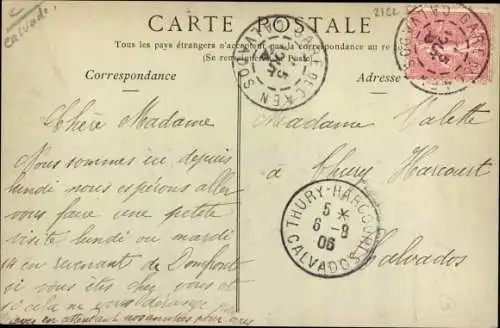 CARTE POSTALE
Tous les pays étrangers n'acceptent pas la correspondance au re
(Se renseigner à la Poste)
Correspondance
Adresse
Calvados
Chère Madame
Nous sommes ici depuis
lundi nous espérons aller
vous faire une petite
visite lundi ou mardi
14 en revenant de Domfront
si vous êtes chez vous et
si cela ne vous dérange pas
en attendant nos amitiés pour
Madame Valette
à Thury Harcourt
Calvados
GARE DE CAEN
CALVADOS
GARE DE CAEN
CALVADOS
THURY-HARCOURT
5 *
6 -8
06
CALVADOS